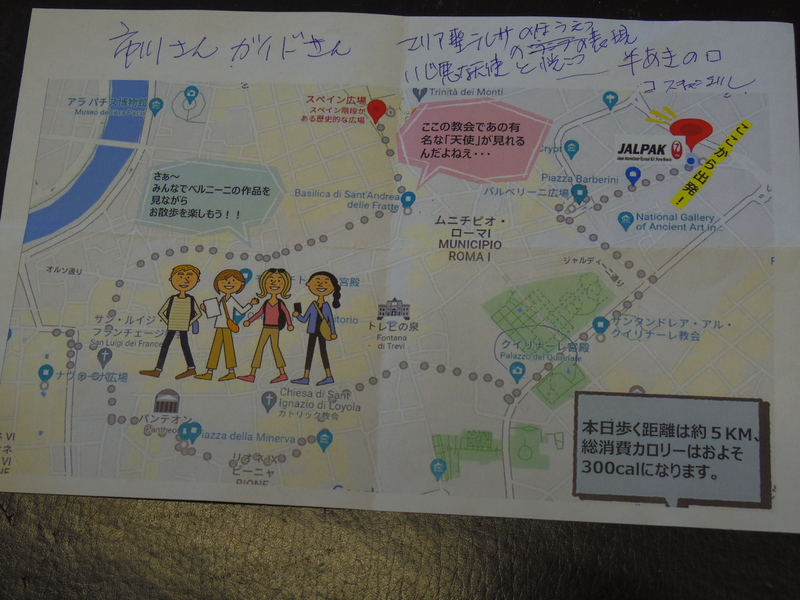 市川さん ガイドさん
アラ パチス博物館
Museo dell'Ara Pacis
スペイン広場
スペイン階段が
ある歴史的な広場
Trinità dei Monti
ここの教会であの有
名な「天使」が見れる
んだよねえ・・・
JALPAK
ここから出発！
Piazza Barberini
バルベリーニ広場
National Gallery
of Ancient Art in...
さぁ～
みんなでベルニーニの作品を
見ながら
お散歩を楽しもう！！
Basilica di Sant'Andrea
delle Fratte
ムニチピオ・
ローマI
MUNICIPIO
ROMA I
オルソ通り
ジャルディーニ通り
サン・ルイジ
フランチェージ
San Luigi dei Frances
トレビの泉
Fontana
di Trevi
サンタンドレア・アル・
クイリナーレ教会
クイリナーレ宮殿
Palazzo del Quirinale
ナヴォーナ広場
Chiesa di Sant'
Ignazio di Loyola
カトリック教会
パンテオン
Pantheon
Piazza della Minerva
リオネ IX
ピーニャ
PIONE
本日歩く距離は約５KM、
総消費カロリーはおよそ
300calになります。